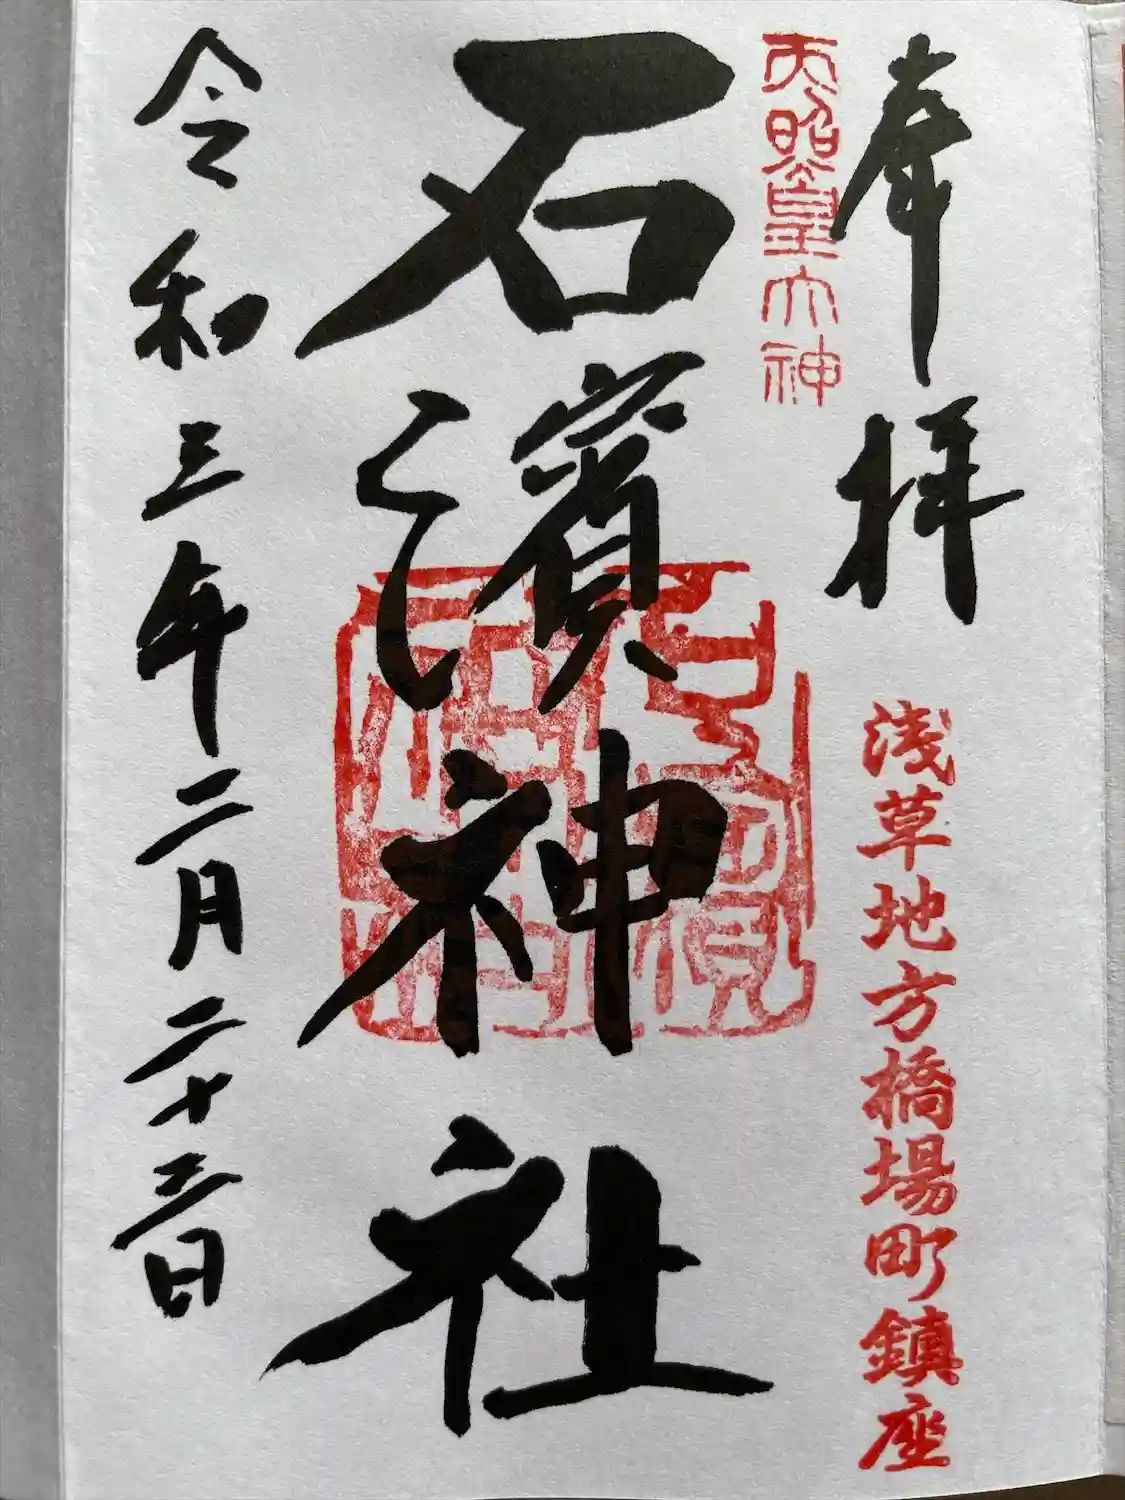 奉拝
浅草地方橋場町鎮座
天照皇大神
石濱神社
令和三年二月二十三日